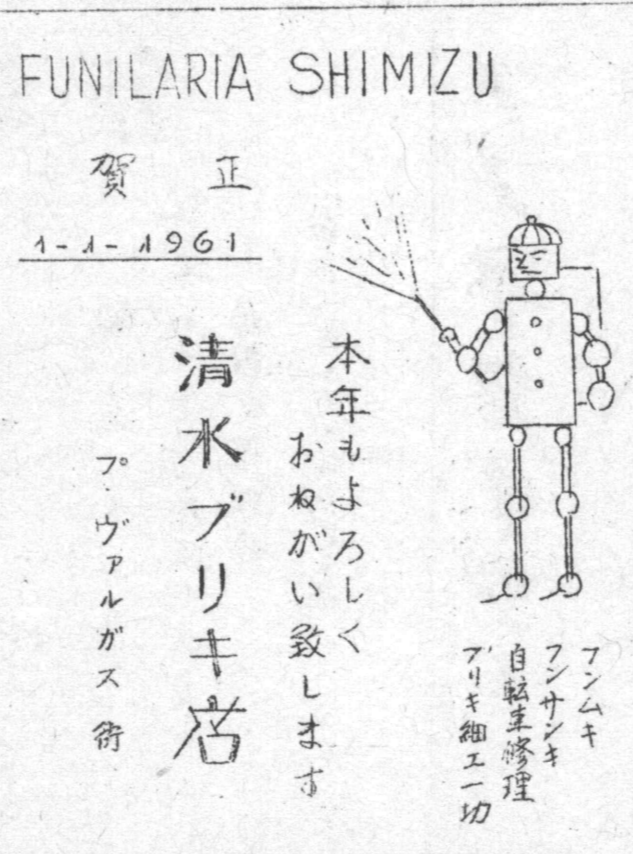 FUNILARIA SHIMIZU
賀 正
1-1-1961
本年もよろしく
おねがい致します
清水ブリキ店
プ ヴァルガス街
フンムキ
フンサンキ
自転車修理
ブリキ細工一切